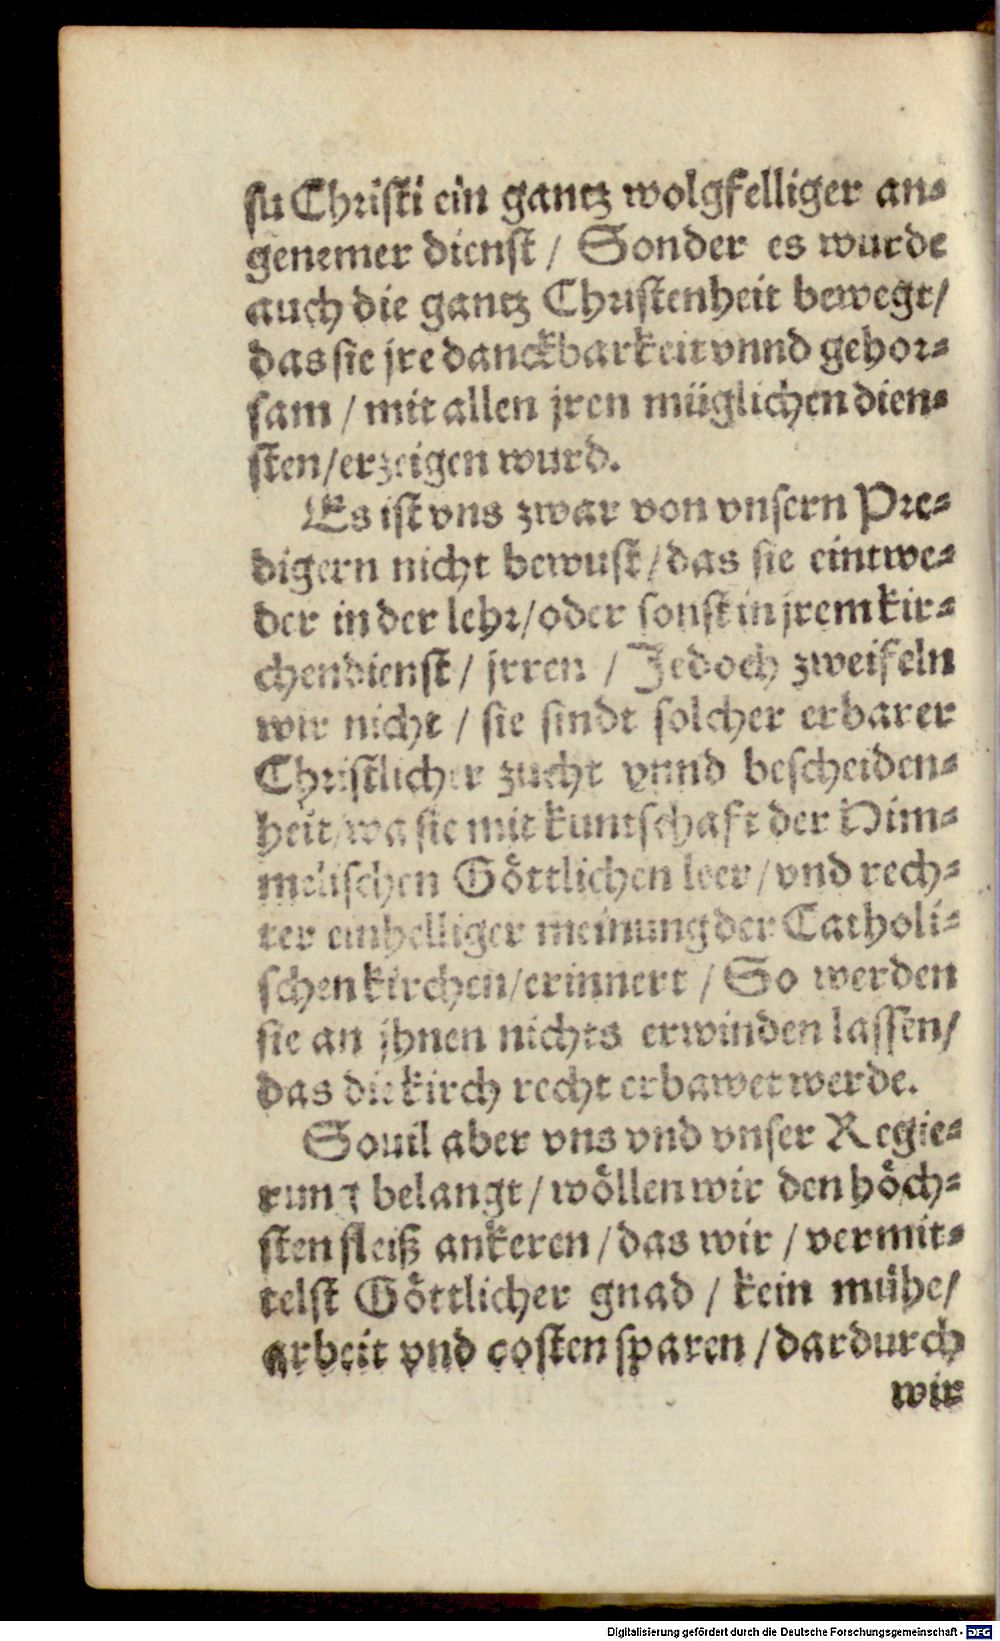 su Christi ein gantz wolgfelliger an⸗
genemer dienst / Sonder es wurde
auch die gantz Christenheit bewegt/
das sie jre danckbarkeit vnnd gehor⸗
sam / mit allen jren müglichen dien⸗
sten/erzeigen wurd.
Es ist vns zwar von vnsern Pre⸗
digern nicht bewust/das sie eintwe⸗
der in der lehr/oder sonst in jrem kir⸗
chendienst/ jrren / Jedoch zweifeln
wir nicht / sie sindt solcher erbarer
Christlicher zucht vnnd bescheiden⸗
heit/wa sie mit kuntschaft der Him⸗
melischen Göttlichen leer/vnd rech⸗
ter einhelliger meinung der Catholi⸗
schen kirchen/erinnert / So werden
sie an jhnen nichts erwinden lassen/
das die kirch recht erbawet werde.
Souil aber vns vnd vnser Regie⸗
rung belangt/wöllen wir den höch⸗
sten fleiß ankeren/das wir / vermit⸗
telst Göttlicher gnad / kein mühe/
arbeit vnd costen sparen /dardurch
wir
Digitalisierung gefördert durch die Deutsche Forschungsgemeinschaft - DFG